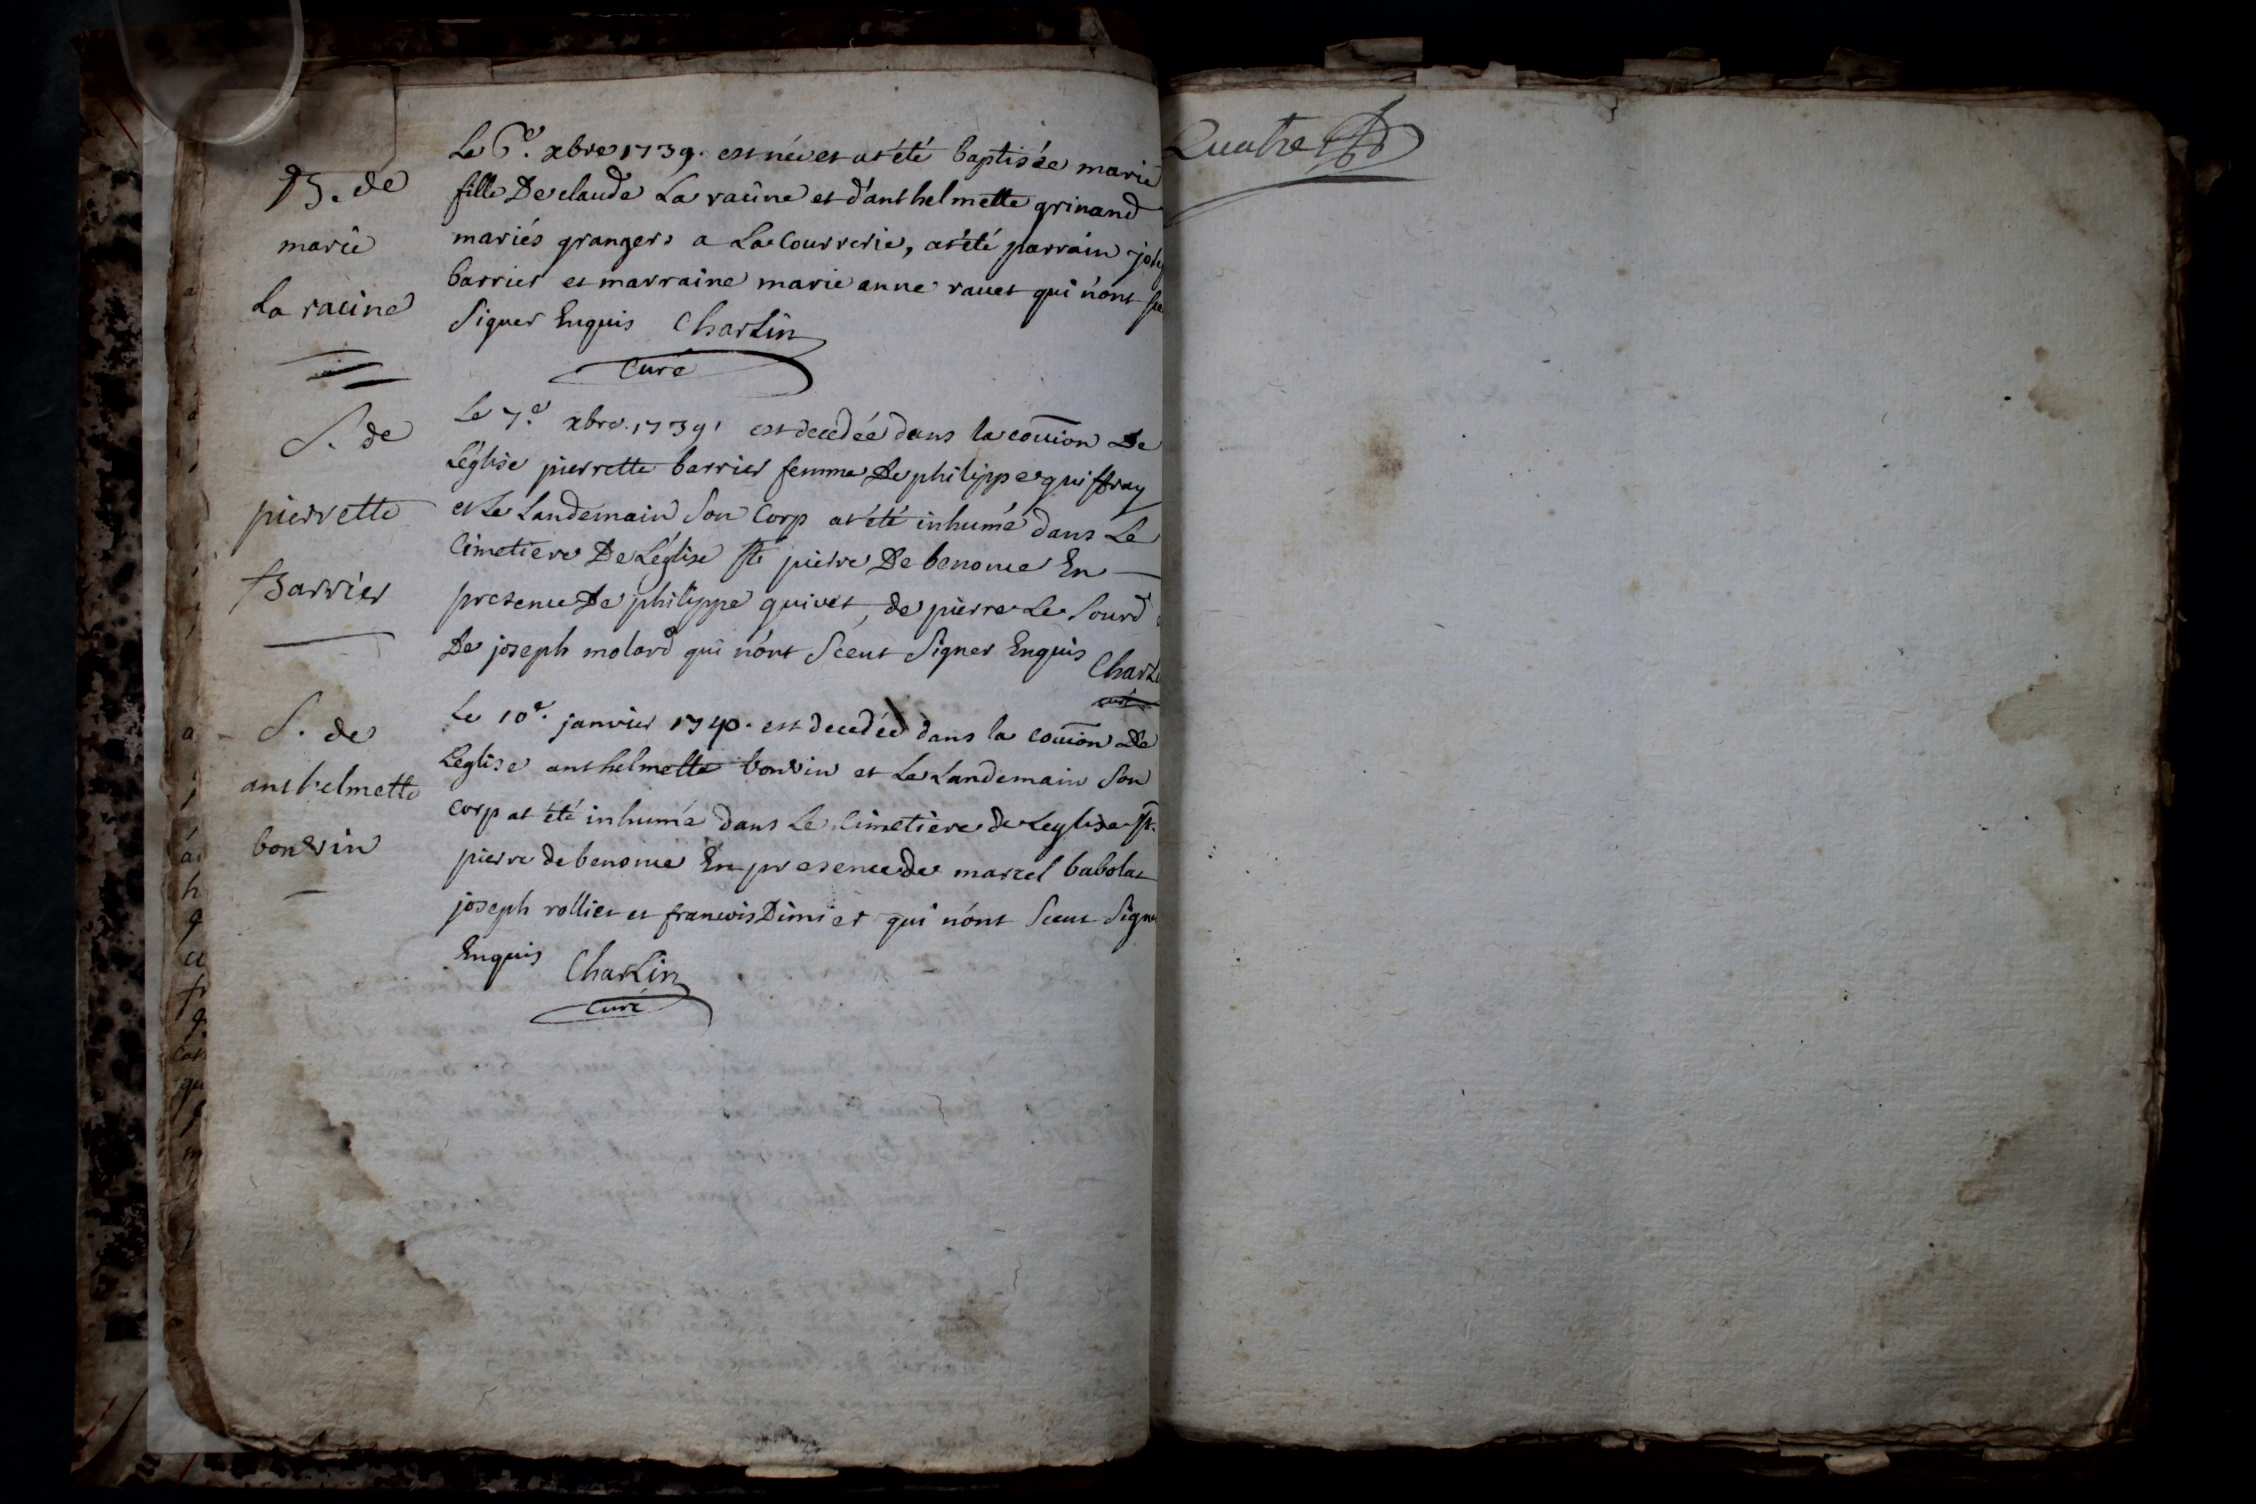 B. de
marie
La racine
Le 6e. xbre 1739. est née et at été baptisée marie
fille De claude La racine et d'anthelmette grinand
mariés grangers a La Courrerie, at été parrain
barrier et marraine marie anne ravet qui n'ont
Signer Enquis Charlin
Curé
S. de
pierrette
Barrier
Le 7.e xbre. 1739. est decedée dans la coũion De
L'eglise pierrette barrier femme De philippe guiffray
et Le Landemain Son Corp at été inhumé dans Le
Cimetiere De L'eglise St pierre De benonce En
presence De philippe guivet, de pierre Le Sourd
De joseph molard qui n'ont Sceut Signer Enquis
Curé
S. de
anthelmette
bonvin
Le 10e. janvier 1740. est decedée dans la coũion De
L'eglise anthelmette bonvin et Le Landemain Son
corp at été inhumé dans Le Cimetiere de Leglise St.
pierre de benonce En presence de marcel babolat
joseph rollier et francois Dimier qui n'ont Sceut
Enquis Charlin
Curé
Quatre